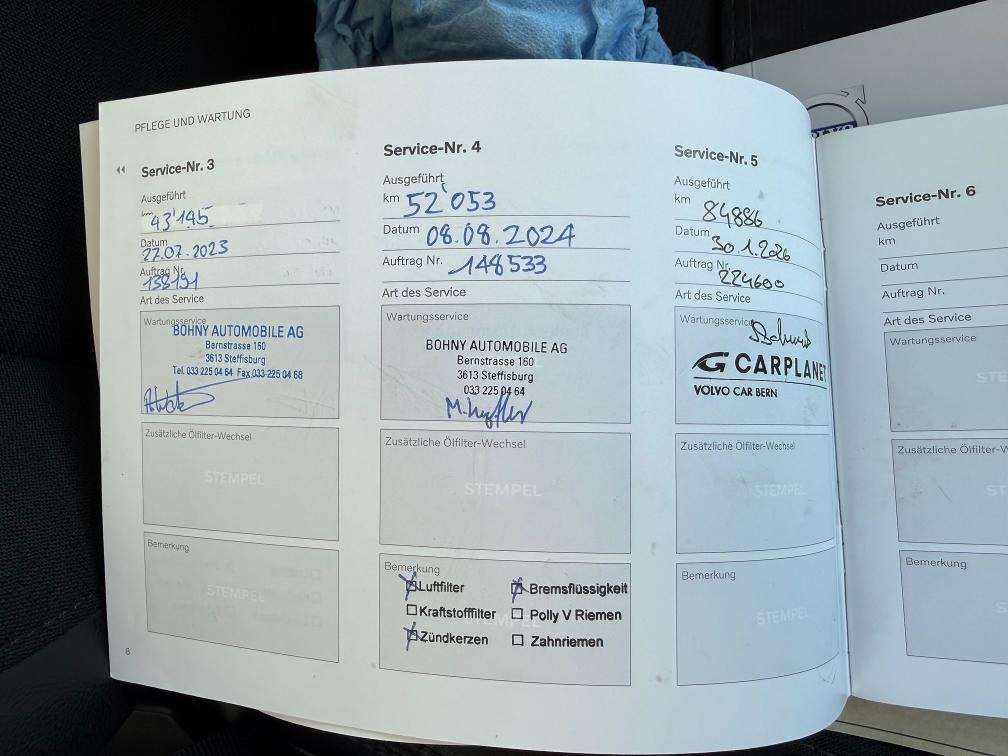 PFLEGE UND WARTUNG
Service-Nr. 3
Ausgeführt
km 43'145
Datum
27.07.2023
Auftrag Nr.
138191
Art des Service
Wartungsservice
BOHNY AUTOMOBILE AG
Bernstrasse 160
3613 Steffisburg
Tel. 033 225 04 64 Fax 033 225 04 68
Zusätzliche Ölfilter-Wechsel
STEMPEL
Bemerkung
STEMPEL
8
Service-Nr. 4
Ausgeführt
km 52'053
Datum 08.08.2024
Auftrag Nr. 148533
Art des Service
Wartungsservice
BOHNY AUTOMOBILE AG
Bernstrasse 160
3613 Steffisburg
033 225 04 64
Zusätzliche Ölfilter-Wechsel
STEMPEL
Bemerkung
Luftfilter Bremsflüssigkeit
Kraftstofffilter Polly V Riemen
Zündkerzen Zahnriemen
Service-Nr. 5
Ausgeführt
km 84886
Datum 30.1.2026
Auftrag Nr.
224600
Art des Service
Wartungsservice
CARPLANET
VOLVO CAR BERN
Zusätzliche Ölfilter-Wechsel
STEMPEL
Bemerkung
STEMPEL
Service-Nr. 6
Ausgeführt
km
Datum
Auftrag Nr.
Art des Service
Wartungsservice
STE
Zusätzliche Ölfilter-W
ST
Bemerkung
S